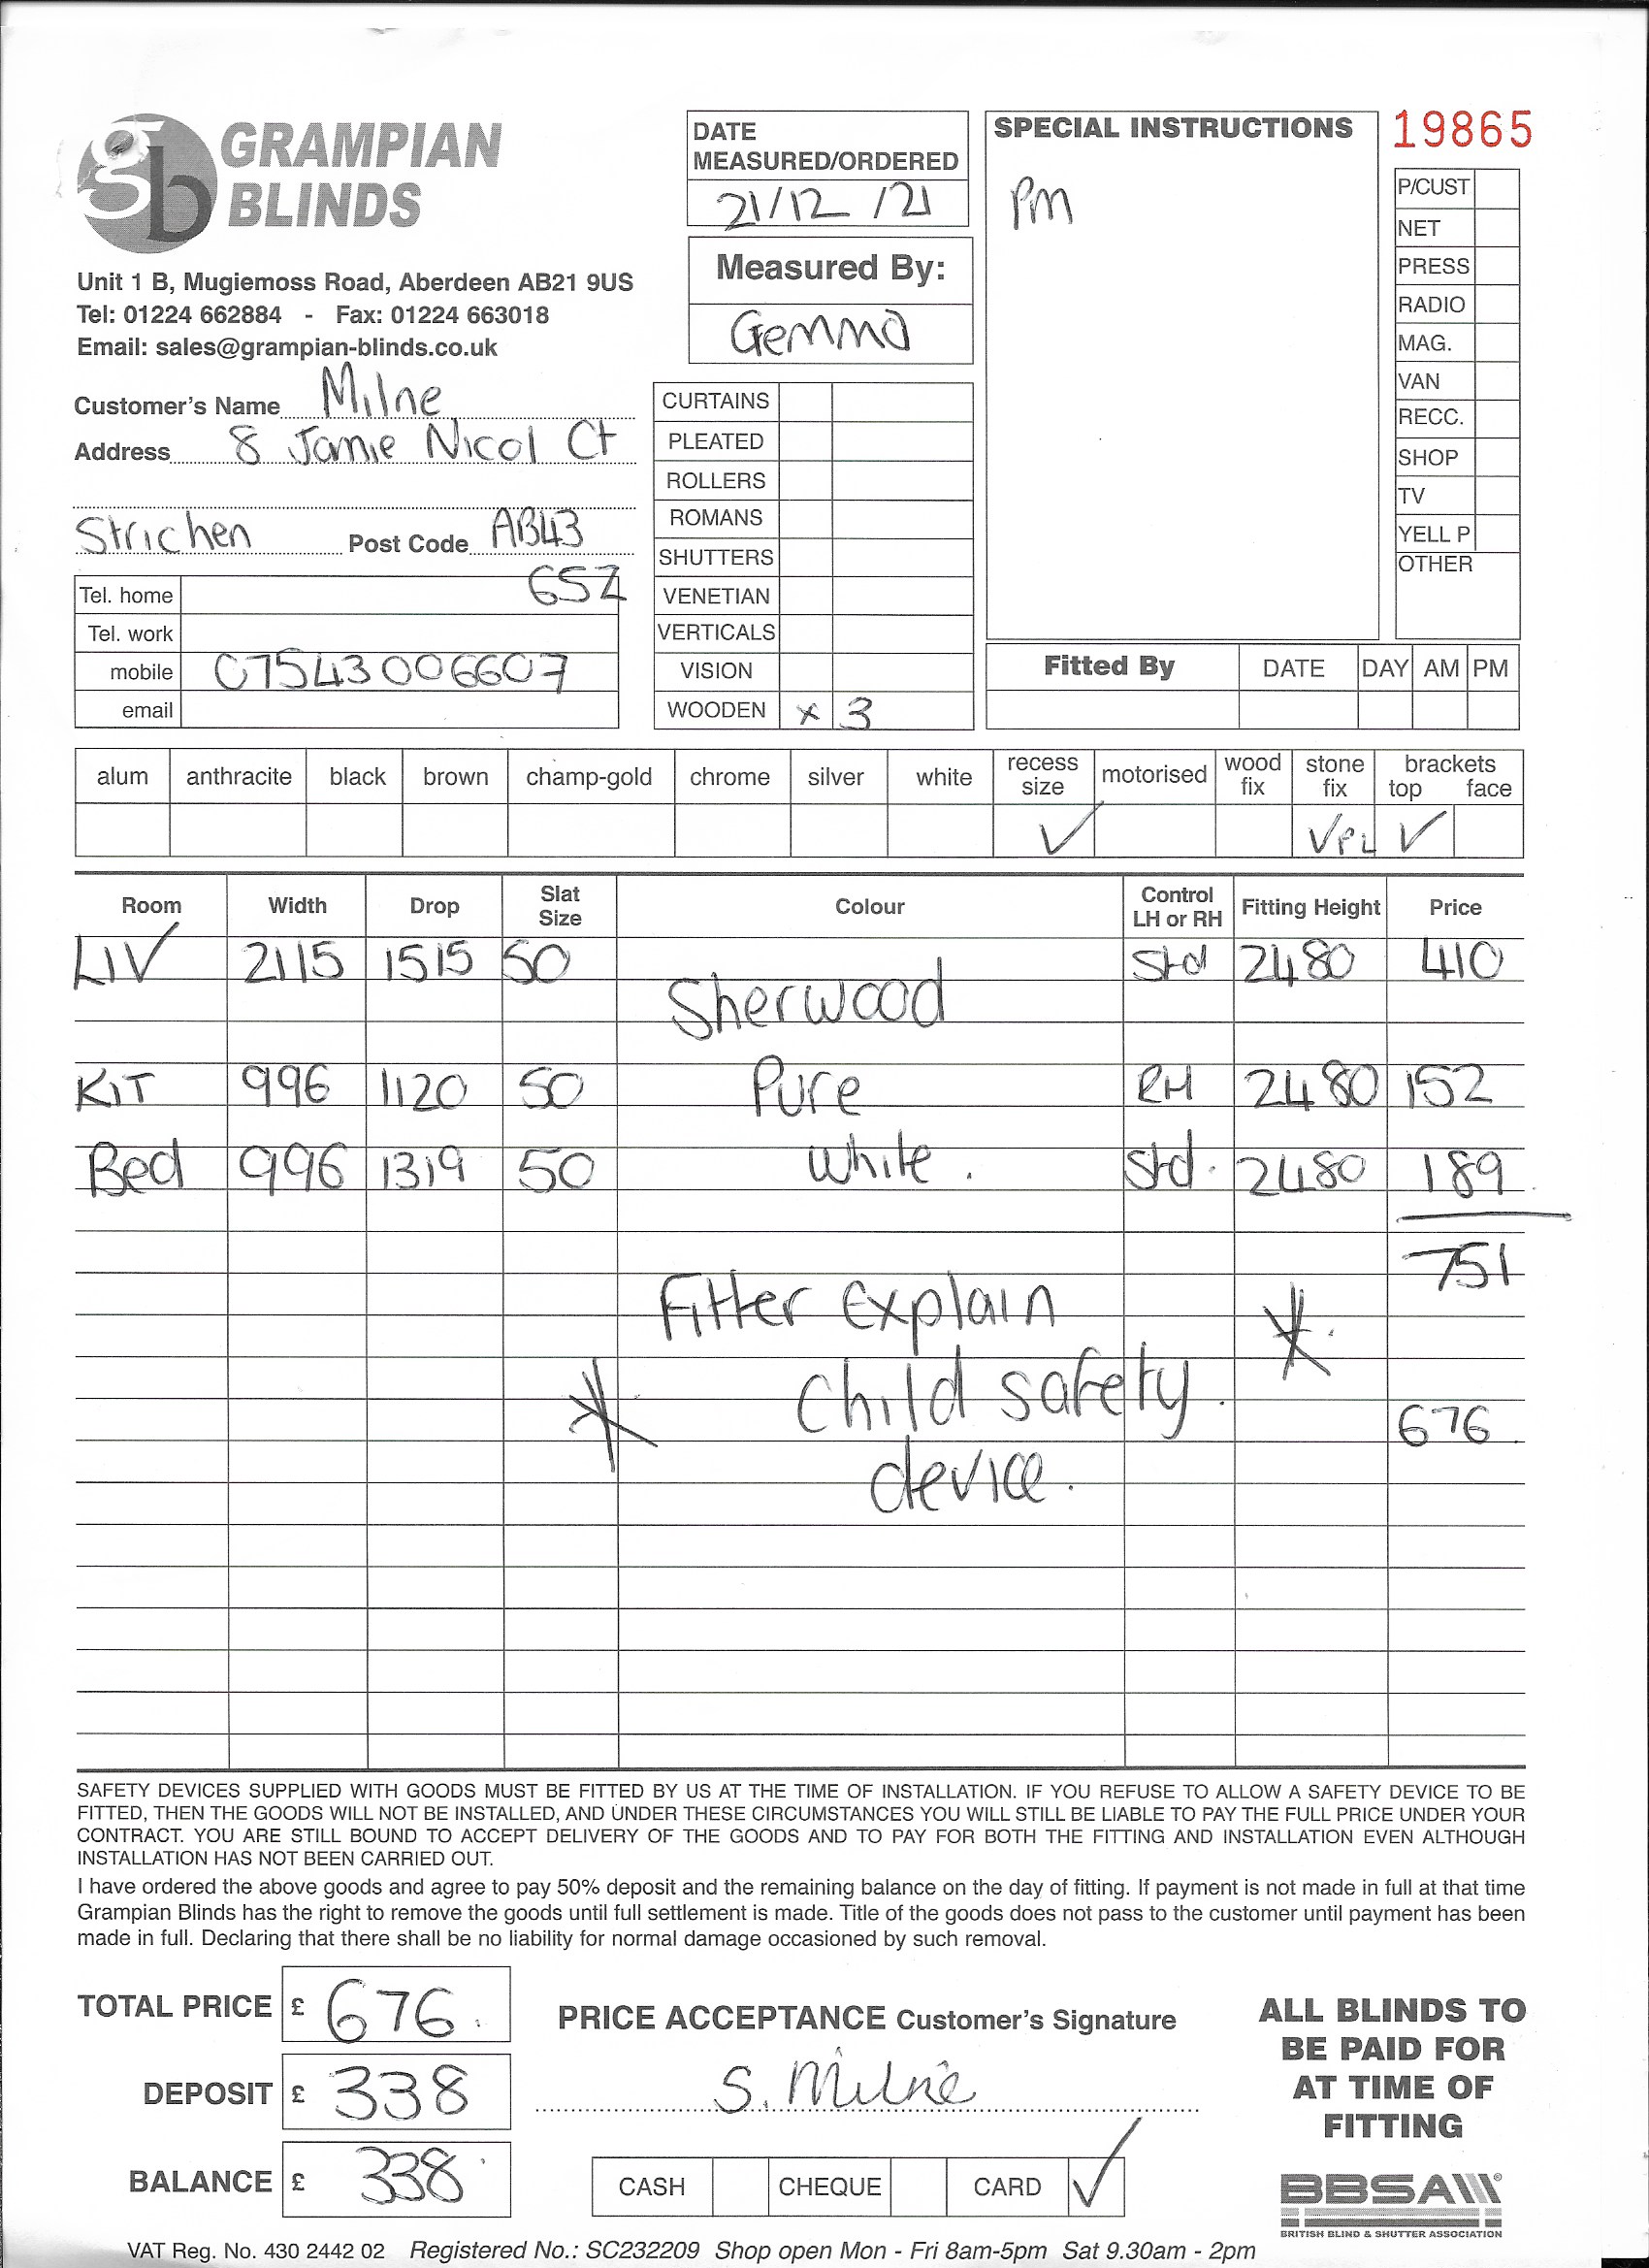 gb GRAMPIAN
BLINDS
Unit 1 B, Mugiemoss Road, Aberdeen AB21 9US
Tel: 01224 662884 - Fax: 01224 663018
Email: sales@grampian-blinds.co.uk
Customer's Name Milne
Address 8 Jamie Nicol Ct
Strichen Post Code AB43
6SZ
Tel. home
Tel. work
mobile 07543006607
email
DATE
MEASURED/ORDERED
21/12/21
Measured By:
Gemma
CURTAINS
PLEATED
ROLLERS
ROMANS
SHUTTERS
VENETIAN
VERTICALS
VISION
WOODEN x 3
SPECIAL INSTRUCTIONS
pm
19865
P/CUST
NET
PRESS
RADIO
MAG.
VAN
RECC.
SHOP
TV
YELL P
OTHER
Fitted By DATE DAY AM PM
alum anthracite black brown champ-gold chrome silver white recess size motorised wood fix stone fix brackets top face
✓ ✓ PL ✓
Room Width Drop Slat Size Colour Control LH or RH Fitting Height Price
LIV 2115 1515 50 Std 2480 410
Sherwood
KIT 996 1120 50 Pure RH 2480 152
Bed 996 1319 50 White. Std. 2480 189
751
Fitter Explain *
* Child safety.
676
device.
SAFETY DEVICES SUPPLIED WITH GOODS MUST BE FITTED BY US AT THE TIME OF INSTALLATION. IF YOU REFUSE TO ALLOW A SAFETY DEVICE TO BE
FITTED, THEN THE GOODS WILL NOT BE INSTALLED, AND UNDER THESE CIRCUMSTANCES YOU WILL STILL BE LIABLE TO PAY THE FULL PRICE UNDER YOUR
CONTRACT. YOU ARE STILL BOUND TO ACCEPT DELIVERY OF THE GOODS AND TO PAY FOR BOTH THE FITTING AND INSTALLATION EVEN ALTHOUGH
INSTALLATION HAS NOT BEEN CARRIED OUT.
I have ordered the above goods and agree to pay 50% deposit and the remaining balance on the day of fitting. If payment is not made in full at that time
Grampian Blinds has the right to remove the goods until full settlement is made. Title of the goods does not pass to the customer until payment has been
made in full. Declaring that there shall be no liability for normal damage occasioned by such removal.
TOTAL PRICE £ 676.
DEPOSIT £ 338
BALANCE £ 338
PRICE ACCEPTANCE Customer's Signature
S. Milne
CASH CHEQUE CARD ✓
ALL BLINDS TO
BE PAID FOR
AT TIME OF
FITTING
BBSA
BRITISH BLIND & SHUTTER ASSOCIATION
VAT Reg. No. 430 2442 02 Registered No.: SC232209 Shop open Mon - Fri 8am-5pm Sat 9.30am - 2pm